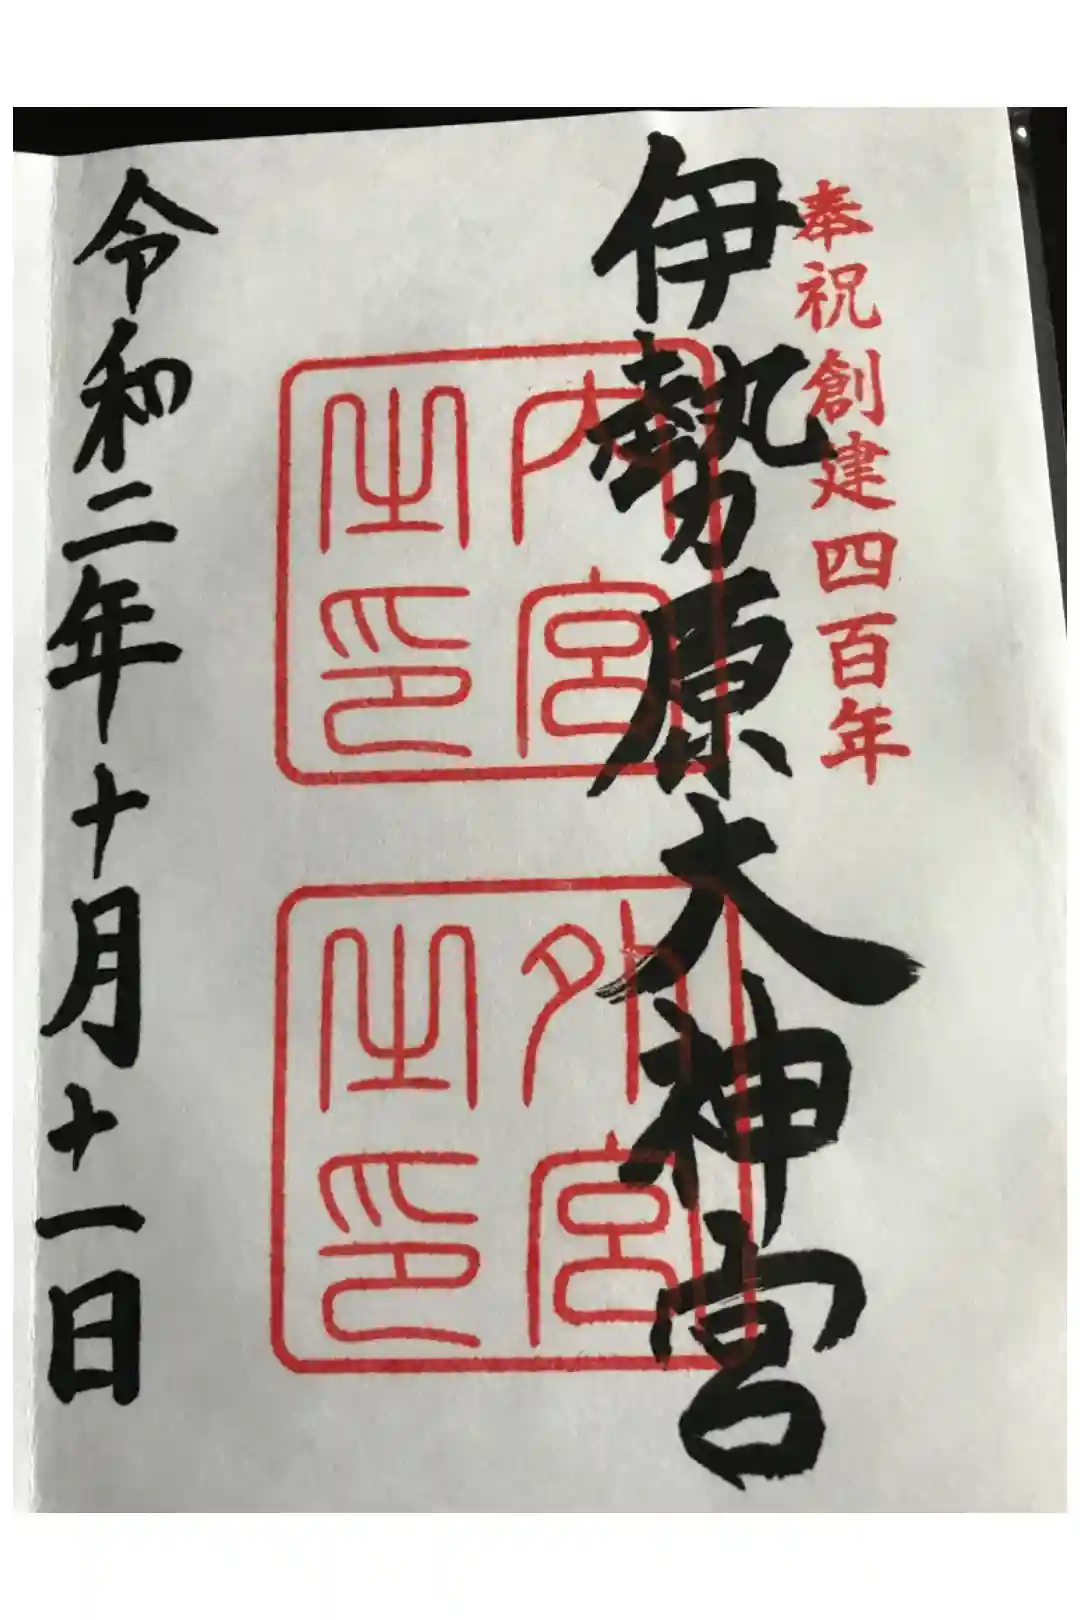 奉祝創建四百年
伊勢原大神宮
内宮
之印
外宮
之印
令和二年十月十一日